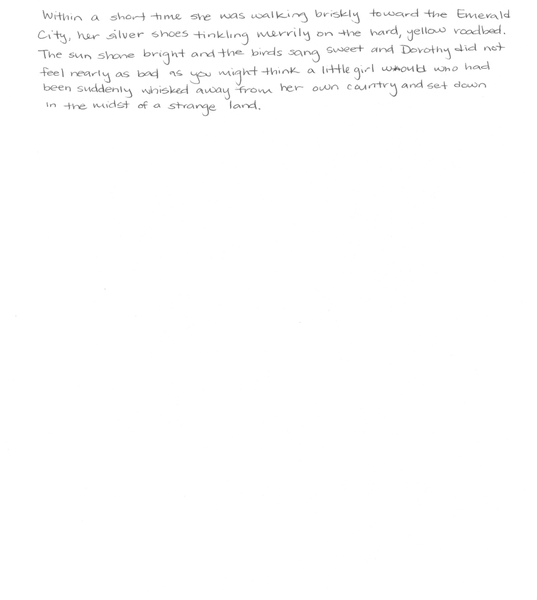 Within a short time she was walking briskly toward the Emerald
City, her silver shoes tinkling merrily on the hard, yellow roadbed.
The sun shone bright and the birds sang sweet and Dorothy did not
feel nearly as bad as you might think a little girl whould who had
been suddenly whisked away from her own country and set down
in the midst of a strange land.